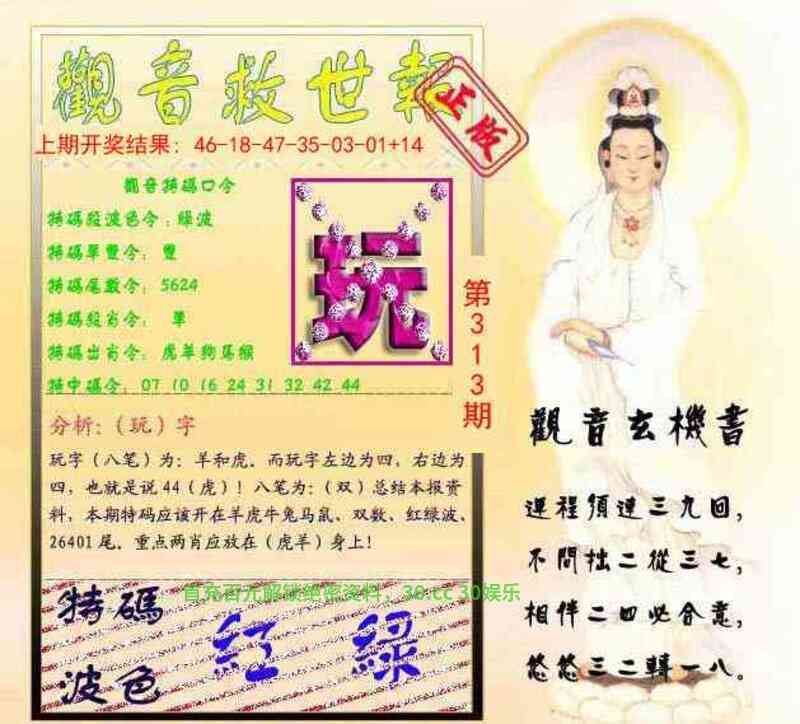 觀音救世報
正版
上期开奖结果：46-18-47-35-03-01+14
觀音特碼口令
特碼段波色令：綠波
特碼單雙令：雙
特碼尾數令：5624
特碼段肖令：單
特碼出肖令：虎羊狗馬猴
特中碼令：07 10 16 24 31 32 42 44
玩
第313期
分析:（玩）字
玩字（八笔）为：羊和虎．而玩字左边为四，右边为
四，也就是说44（虎）！八笔为：（双）总结本报资
料，本期特码应该开在羊虎牛兔马鼠、双数、红绿波、
26401尾．重点两肖应放在（虎羊）身上！
首充百元解锁绝密资料，30.cc 30娱乐
特碼
波色
紅 綠
觀音玄機書
運程須達三九回，
不問拙二從三七，
相伴二四必合意，
悠悠三二轉一八。